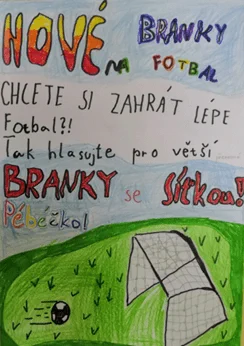 NOVÉ BRANKY
NA FOTBAL
CHCETE SI ZAHRÁT LÉPE
Fotbal?!
Tak hlasujte pro větší
BRANKY se Síťkou!
Pébéčko!